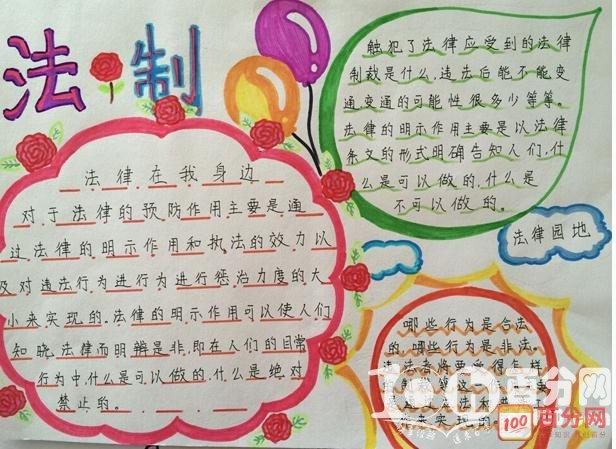 法制
法律在我身边
对于法律的预防作用主要是通
过法律的明示作用和执法的效力以
及对违法行为进行为进行惩治力度的大
小来实现的.法律的明示作用可以使人们
知晓.法律而明辨是非,即在人们的日常
行为中.什么是可以做的.什么是绝对
禁止的。
触犯了法律应受到的法律
制裁是什么.违法后能不能变
通.变通的可能性很多少等等。
法律的明示作用主要是以法律
条文的形式明确告知人们.什
么是可以做的.什么是
不可以做的。
法律园地
哪些行为是合法
的.哪些行为是非法。
违法者将要
来实现的。
100
百分网